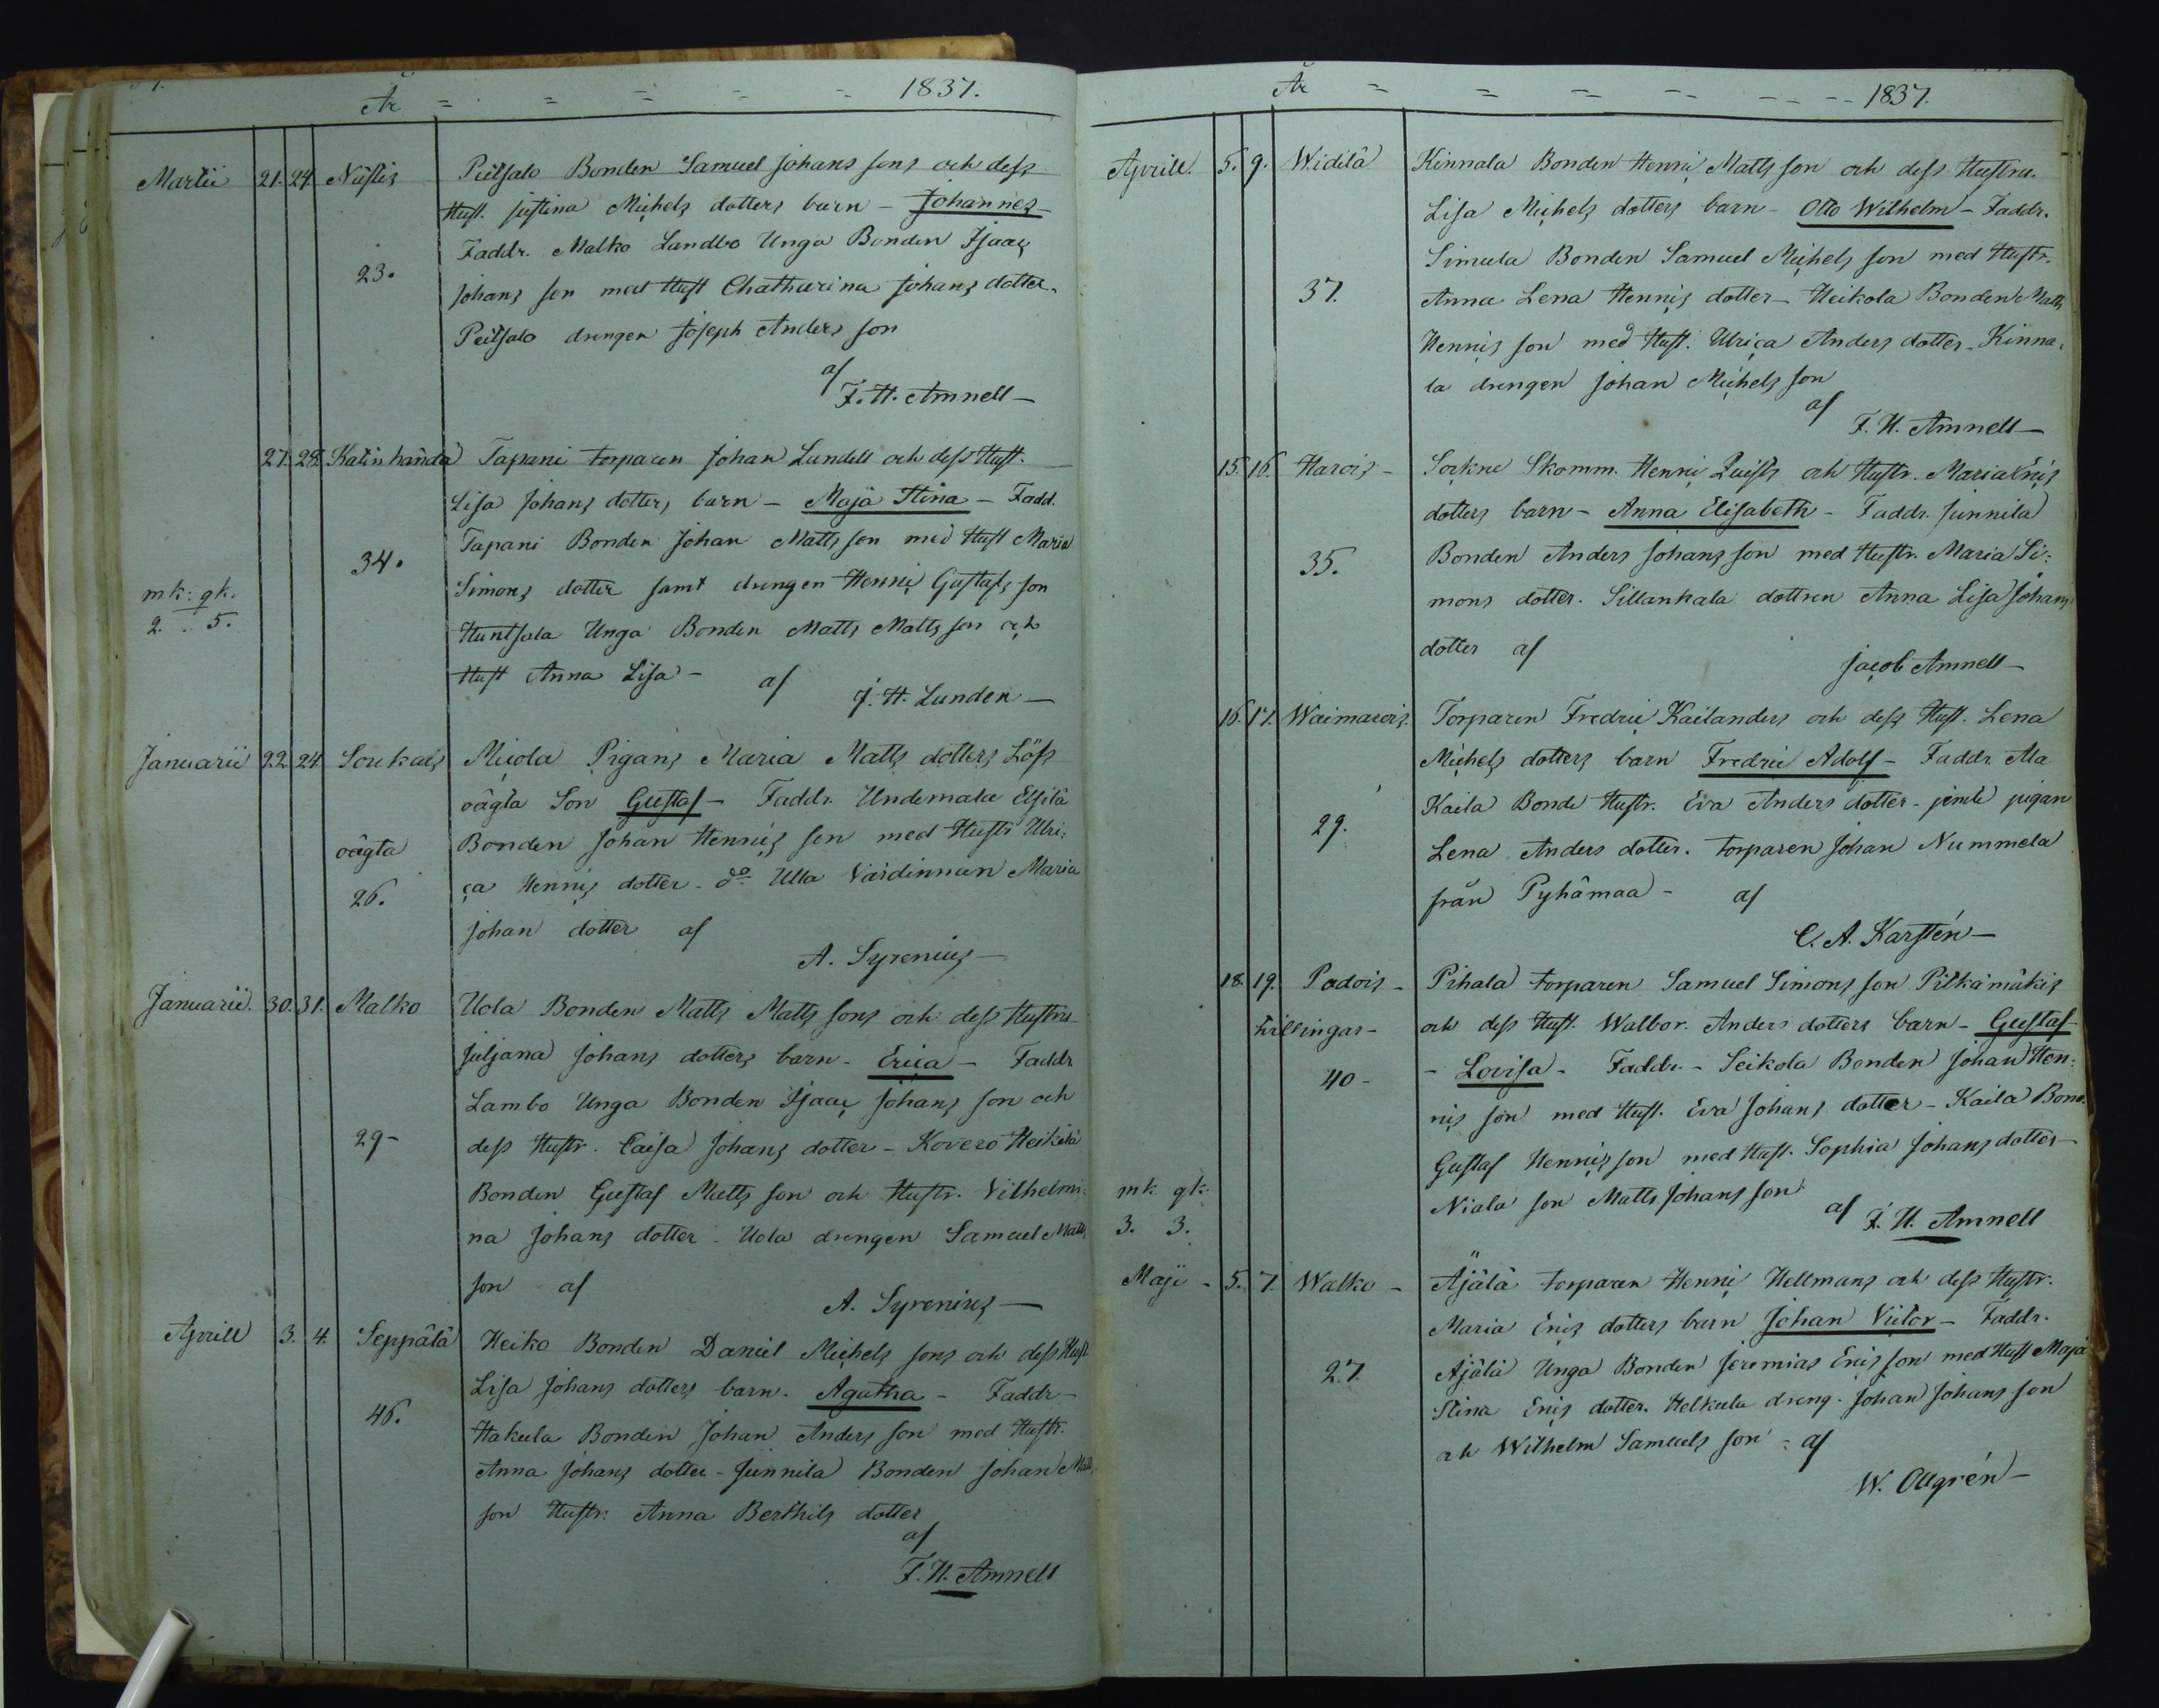 År = = = - - 1837.
Martii 21. 24 Nästis Peitsalo Bonden Samuel Johans sons och dess
Hust. Justina Michels dotters barn - Johannes
Faddr. Malko Landbo Unga Bonden Isaac
23. Johans son med Hust Chatharina Johans dotter.
Peitsalo drengen Joseph Anders son
af
F. H. Amnell -
27. 28. Katinhända Tapani torparen Johan Lundell och dess Hust.
Lisa Johans dotters barn - Maja Stina - Fadd.
Tapani Bonden Johan Matts son med Hust Maria
34. Simons dotter samt drengen Henric Gustafs son
mk: qk.
2. . 5. Huntsala Unga Bonden Matts Matts son och
Hust Anna Lisa - af
J. H. Lunden -
Januarii 22 24 Soukais Miola Pigans Maria Matts dotters Löss
oägta Son Gustaf - Faddr. Undemala Elsilä
oägta Bonden Johan Henrics son med Hustr Ulri:
26. ca Henrics dotter. do Ulla Värdinnan Maria
Johan dotter af
A. Syrenius -
Januarii. 30. 31. Malko Uola Bonden Matts Matts sons och dess Hustru
Juljana Johans dotters barn - Erica - Faddr
Lambo Unga Bonden Isaac Johans son och
29 - dess Hustr. Caisa Johans dotter - Kovero Heikilä
Bonden Gustaf Matts son och Hustr. Vilhelmi:
na Johans dotter - Uola drengen Samuel Matts
son af
A. Syrenius -
Aprill 3. 4. Seppälä Heiko Bonden Daniel Michels sons och dess Hust
Lisa Johans dotters barn. Agatha - Faddr -
46. Hakula Bonden Johan Anders son med Hustr.
Anna Johans dotter - Junnila Bonden Johan Matts
son Hustr. Anna Berthils dotter
af
F. H. Amnell
År = = = -- --- 1837.
Aprill. 5. 9. Widilä Kinnala Bonden Henric Matts son och dess Hustru.
Lisa Michels dotters barn - Otto Wilhelm - Faddr.
Simula Bonden Samuel Michels son med Hustr.
37. Anna Lena Henrics dotter - Heikola Bonden Matts
Henrics son med Hust. Ulrica Anders dotter - Kinna:
la drengen Johan Michels son
af
F. H. Amnell -
15. 16. Harois - Sockne Skomm. Henric Quists och Hustr. Maria Erics
dotters barn - Anna Elisabeth - Faddr. Junnila
35. Bonden Anders Johans son med Hustr. Maria Si:
mons dotter. Sillankala dottren Anna Lisa Johans
dotter af
Jacob Amnell -
16. 17. Waimarois. Torparen Fredric Kailanders och dess Hust. Lena
Michels dotters barn Fredric Adolf - Faddr. Ala
Kaila Bonde Hustr. Eva Anders dotter - jemte pigan
29. Lena Anders dotter. torparen Johan Nummela
från Pyhämaa - af
C. A. Karstén -
18. 19. Padois - Pihala torparen Samuel Simons son Pitkämäkis
trillingar - och dess Hust. Walbor. Anders dotters barn - Gustaf -
40 - - Lovisa - Faddr. - Seikola Bonden Johan Hen:
rics son med Hust. Eva Johans dotter - Kaila Bond.
Gustaf Henrics son med Hust. Sophia Johans dotter -
mk. qk.
3. 3. Niala son Matts Johans son
af F. H. Amnell
Maji - 5. 7. Walko - Äjälä torparen Henric Hellmans och dess Hustr.
Maria Erics dotters barn Johan Victor - Faddr.
27. Ajälä Unga Bonden Jeremias Erics son med Hust Maja
Stina Erics dotter. Helkula dreng. Johan Johans son
och Wilhelm Samuels son - af
W. Ollgrén -